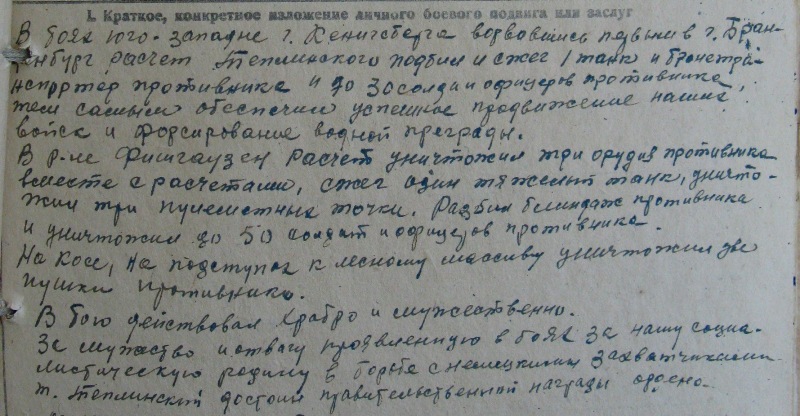 I. Краткое, конкретное изложение личного боевого подвига или заслуг
В боях юго-западне г. Кенигсберга ворвовшись первым в г. Бран-
денбург расчет Теплинского подбил и сжег 1 танк и бронетра-
нспортер противника и до 30 солдат и офицеров противника,
тем самым обеспечил успешное продвижение наших
войск и форсирование водной преграды.
В р-не Фишгаузен расчет уничтожил три орудия противника
вместе с расчетами, сжег один тяжелый танк, уничто-
жил три пулеметных точки. Разбил блиндаж противника
и уничтожил до 50 солдат и офицеров противника.
На косе, на подступах к лесному массиву уничтожил две
пушки противника.
В бою действовал храбро и мужественно.
За мужество и отвагу проявленную в боях за нашу социа-
листическую родину в борьбе с немецкими захватчиками
т. Теплинский достоин правительственной награды